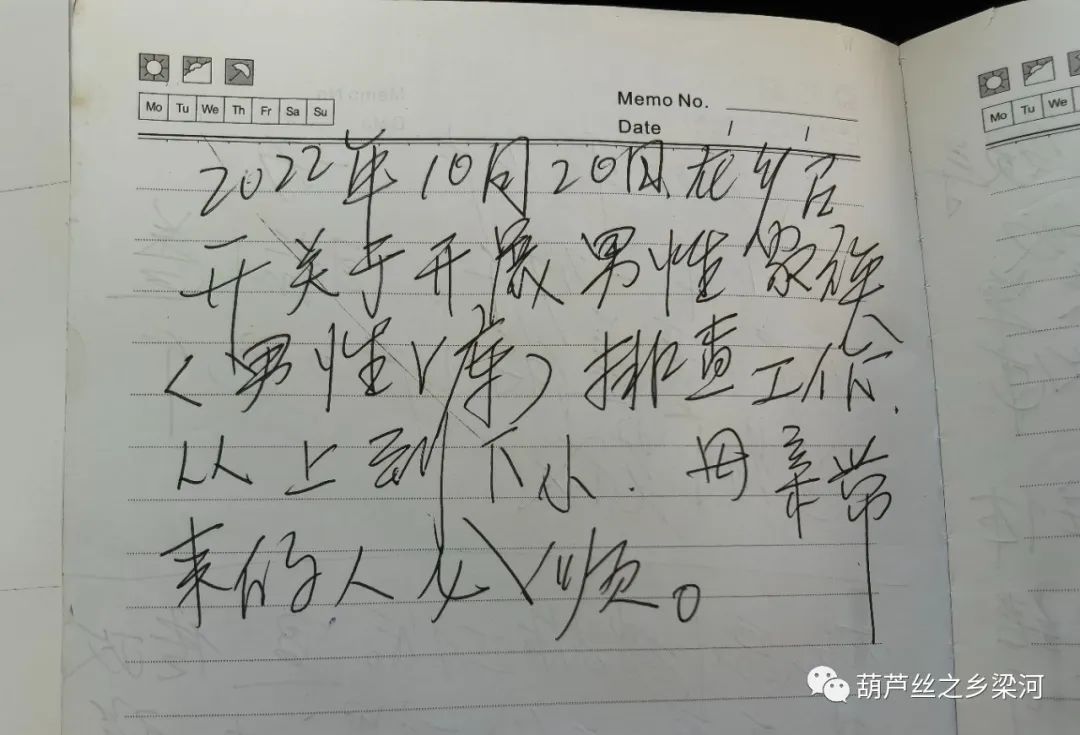 Mo Tu We Th Fr Sa Su
Memo No.
Date / /
2022年10月20日.在乡召
开关于开展男性家族
(男性Y库)排查工作.
从上到下小.母亲带
来的人必须。
Mo Tu We
葫芦丝之乡梁河